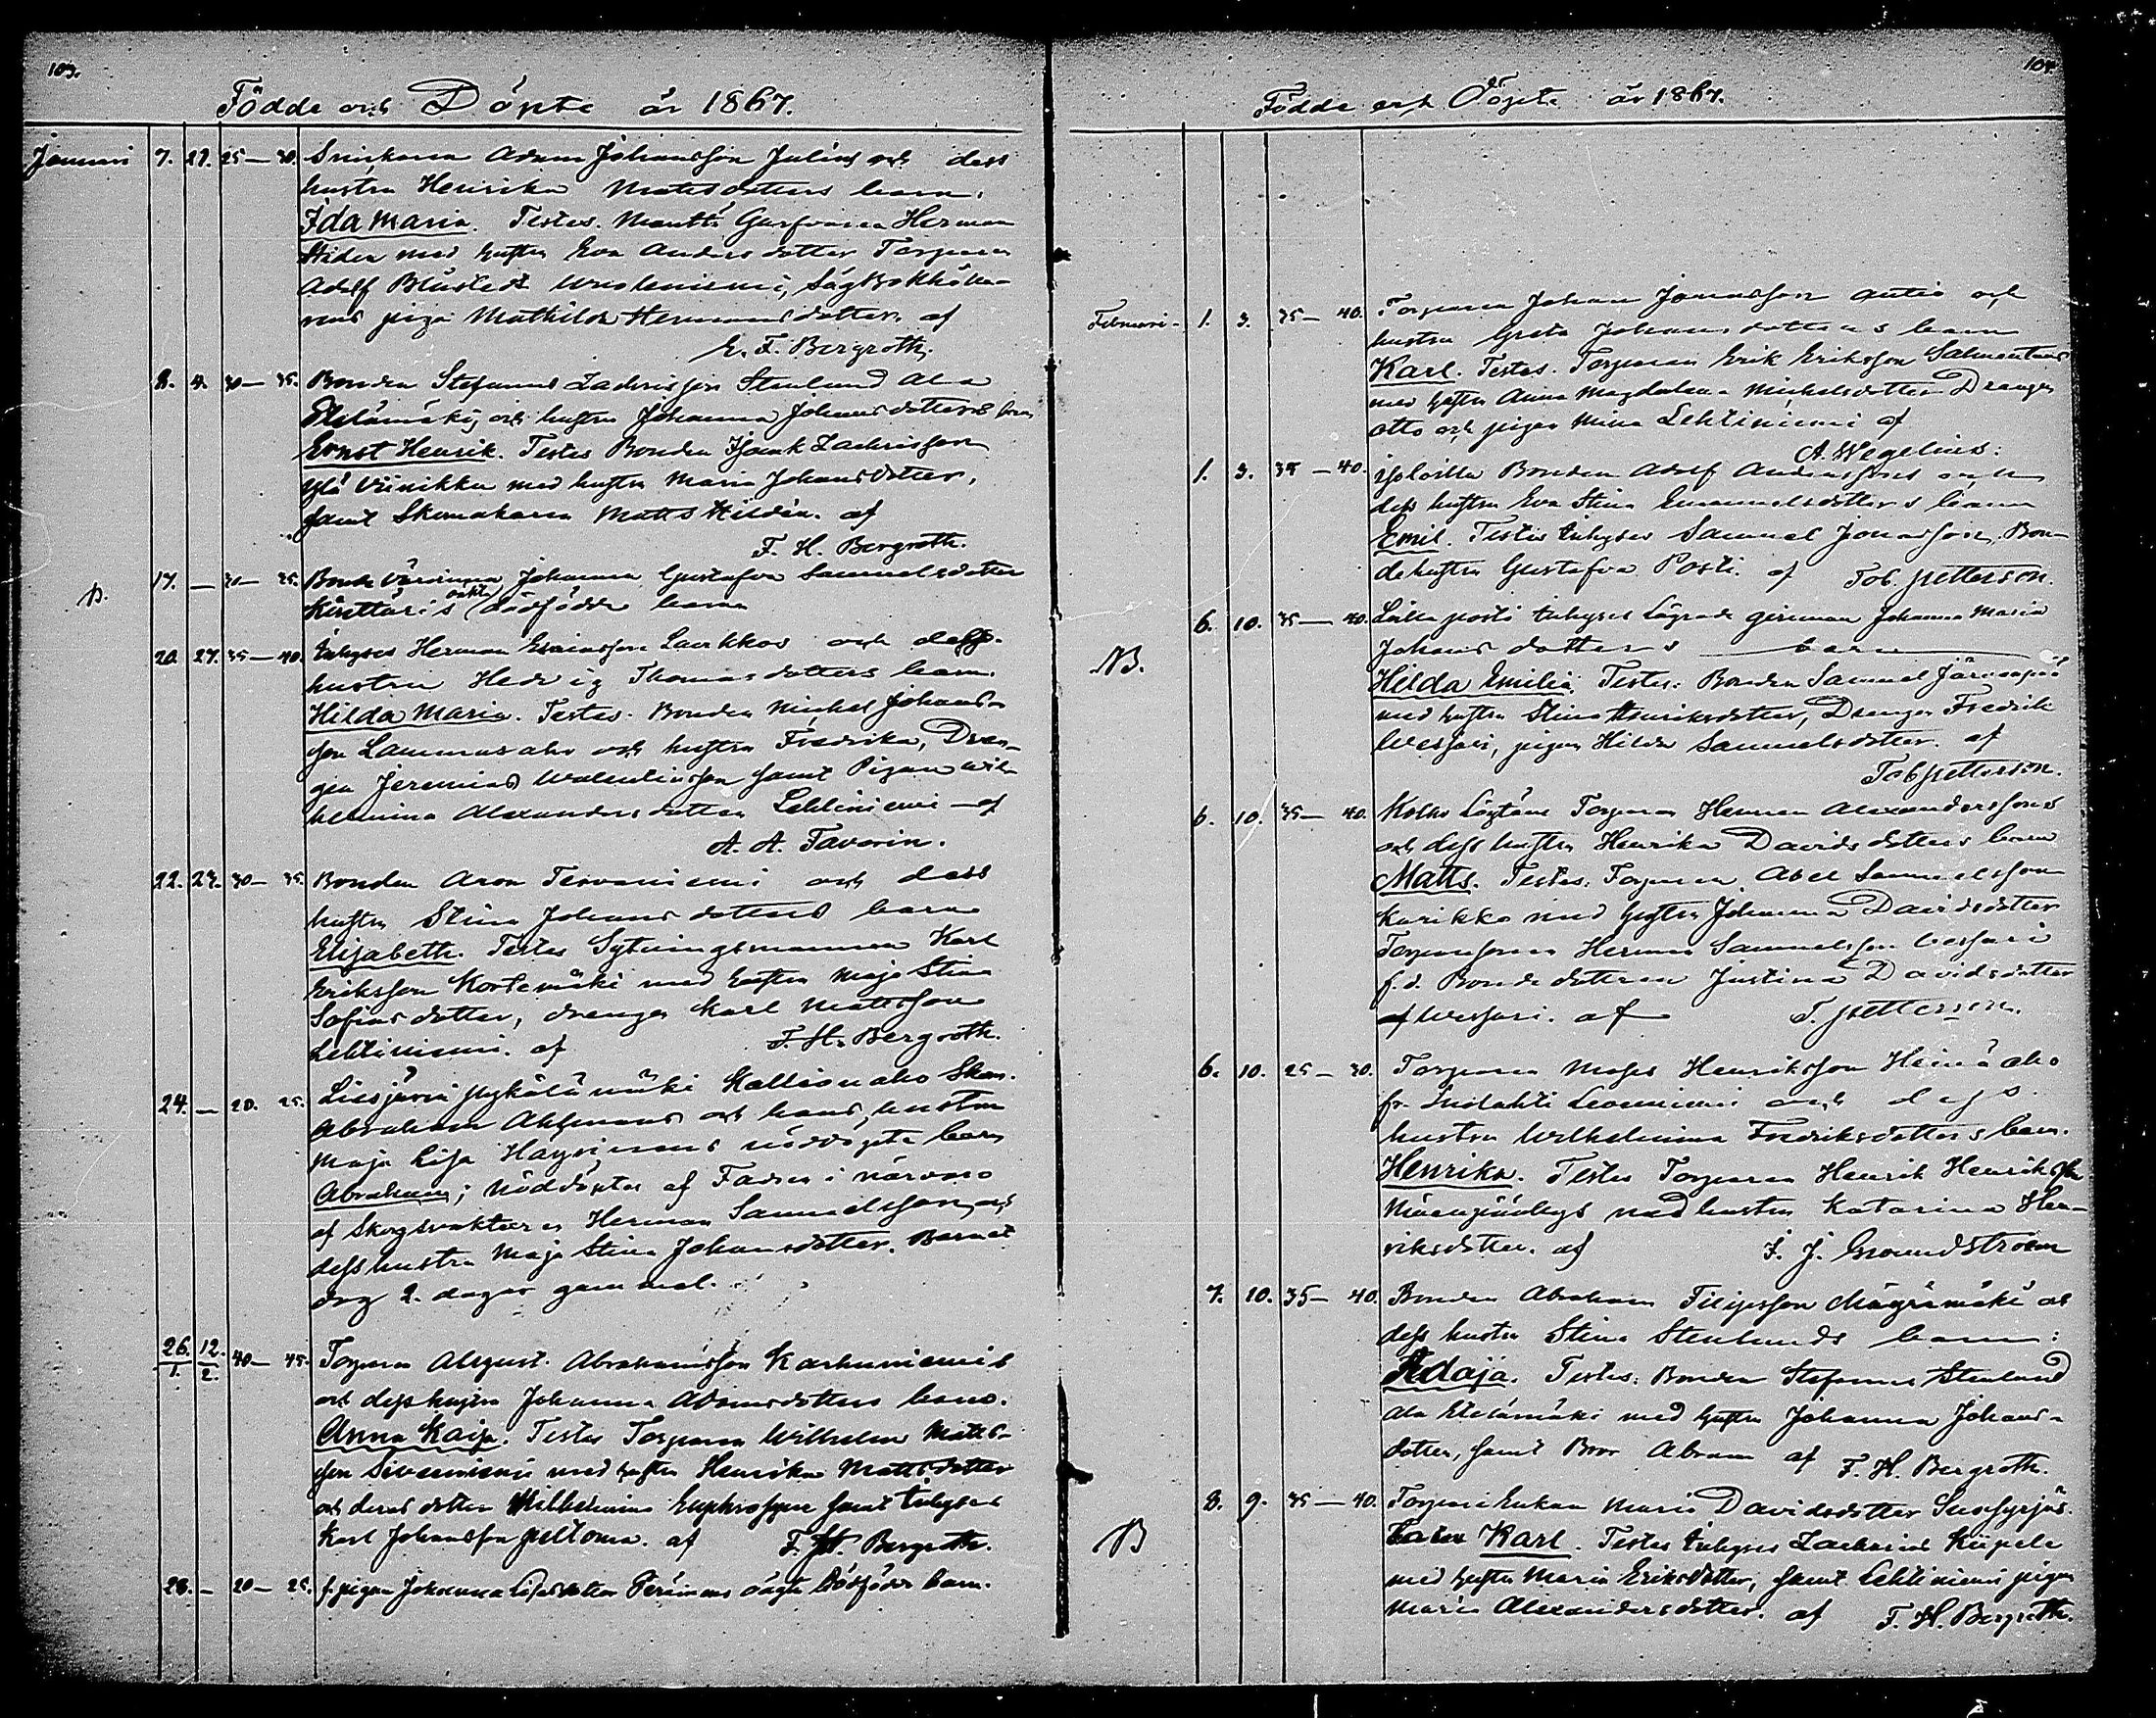 103.
Födde och Döpte år 1867.
Januari 7. 27. 25 — 30. Snickaren Adam Johansson Julius och dess
hustru Henrika Matsdotters barn,
Ida Maria. Testes. Herman
Hiden med hustru Eva Andersdotter Torparen
Adolf
pigan Mathilda Hermansdotter af
E. F. Bergroth.
8. 9. 30 — 35. Bonden Stefanus Zachrisson Stenlund Ala
Etelämäki och hustru Johanna Johansdotters barn
Ernst Henrik. Testes Bonden Isaak Zachrisson
Ylä Viinikka med hustru Maria Johansdotter,
samt Skomakaren Matts Hildén. af
F. H. Bergroth.
17. — 20 — 25. Johanna Gustafva Samuelsdotter
oäkta dödfödde barn
20. 27. 35 — 40. Inhyses Herman Laukkos och dess
hustru Hedvig Thomasdotters barn.
Hilda Maria. Testes. Bonden Michel Johans-
son Lammasaho och hustru Fredrika, Dren-
gen Jeremias Walentinsson samt Pigan Wil-
helmina Alexandersdotter Lehtiniemi — af
A. A. Favorin.
22. 27. 30 — 35. Bonden Aron Tervaniemi och dess
hustru Stina Johansdotters barn
Elisabeth. Testes Sytningsmannen Karl
Eriksson Kortemäki med hustru Maja Stina
Sofiasdotter, drengen Karl Mattsson
Lehtiniemi. af F. H. Bergroth.
24. — 20. 25. Liesjärvi Pykälämäki Kallionaho
Abraham Ahlmans och hans hustru
Maja Lisa nöddöpte barn
Abraham; nöddöptes af Fadren i närvaro
af Skogsvaktaren Herman Samuelsson och
dess hustru Maja Stina Johansdotter. Barnet
dog 2. dagar gammal.
26./1. 12./2. 40 — 45. Torparen August Abrahamsson Karhuniemis
och dess hustru Johanna Adamsdotters barn.
Anna Kaisa. Testes Torparen Wilhelm Matts-
son med hustru Henrika Mattsdotter
och deras dotter Wilhelmina samt Inhyses
Karl Johansson Peltoma. af F. H. Bergroth.
28. — 20 — 25. f. pigan Johanna dödfödde barn.
104.
Födde och Döpte år 1867.
Februari 1. 3. 35 — 40. Torparen Johan Jonasson Autio och
hustru Greta Johansdotters barn
Karl. Testes. Torparen Erik Eriksson
med hustru Anna Magdalena Michelsdotter Drengen
Otto och pigan Mina Lehtiniemi af
A. Wegelius.
1. 3. 35 — 40. Bonden Adolf Anderssons och
dess hustru Eva Stina Emanuelsdotters barn
Emil. Testes Inhyses Samuel Jonasson, Bon-
dehustru Gustafva Posti. af Tob. Petterson.
6. 10. 35 — 40. Lilla Posti Inhyses Johanna Maria
Johansdotters barn
Hilda Emilia. Testes: Bonden Samuel Järvenpää
med hustru Stina Henriksdotter, Drengen Fredrik
Wessari, pigan Hilda Samuelsdotter. af
Tob Petterson.
6. 10. 35 — 40. Torparen Herman Alexanderssons
och dess hustru Henrika Davidsdotters barn
Matts. Testes: Torparen Abel Samuelsson
Karikko med hustru Johanna Davidsdotter
Torparesonen Herman Samuelsson Wessari
f. d. Bondedottern Justina Davidsdotter
Wessari. af T. Petterson.
6. 10. 25 — 30. Torparen Moses Henriksson Heinäaho
fr. och dess
hustru Wilhelmina Fredriksdotters barn.
Henrika. Testes Torparen Henrik Henriksson
med hustru Katarina Hen-
riksdotter. af F. J. Grundström
7. 10. 35 — 40. Bonden Abraham Filipsson Mäyrämäki och
dess hustru Stina Stenlunds barn:
Adaja. Testes: Bonden Stefanus Stenlund
Ala Etelämäki med hustru Johanna Johans-
dotter, samt Bror Abram af F. H. Bergroth.
8. 9. 35 — 40. Torpare Enkan Maria Davidsdotter
barn Karl. Testes Inhyses Zacharias
med hustru Maria Eriksdotter, samt Lehtiniemi pigan
Maria Alexandersdotter. af F. H. Bergroth.